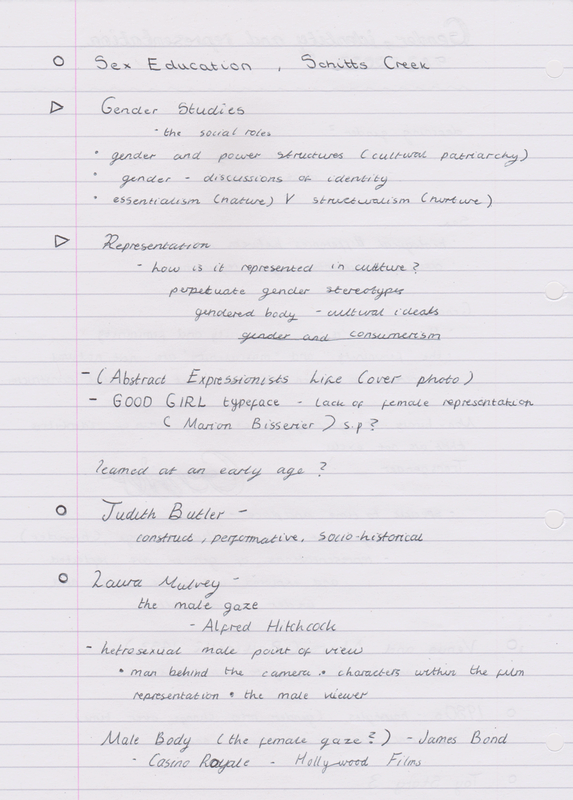 ○ Sex Education , Schitts Creek
▷ Gender Studies
· the social roles
· gender and power structures (cultural patriarchy)
· gender - discussions of identity
· essentialism (nature) V structualism (nurture)
▷ Representation
- how is it represented in culture?
perpetuate gender stereotypes
gendered body - cultural ideals
gender and consumerism
- (Abstract Expressionists Life Cover photo)
- GOOD GIRL typeface - lack of female representation
( Marion Bisserier ) s.p?
learned at an early age ?
○ Judith Butler -
construct, performative, socio-historical
○ Laura Mulvey -
the male gaze
- Alfred Hitchcock
- hetrosexual male point of view
• man behind the camera • characters within the film
representation • the male viewer
Male Body (the female gaze?) - James Bond
- Casino Royale - Hollywood Films